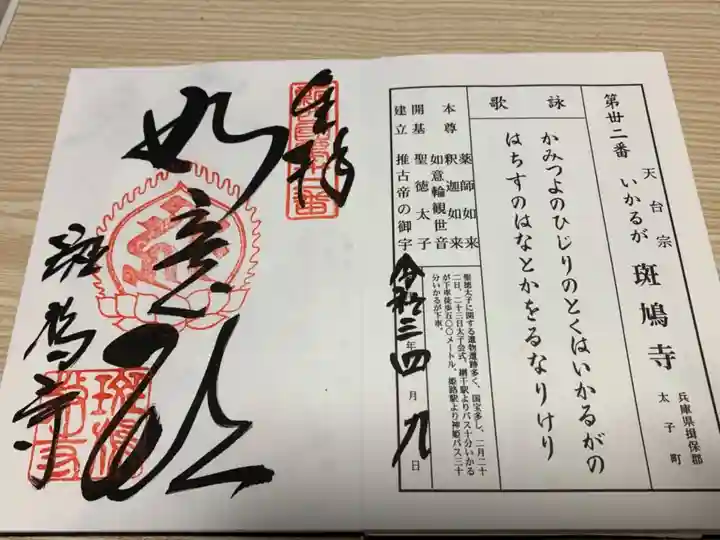 第卅二番 いかるが
天台宗
斑鳩寺
兵庫県揖保郡
太子町
詠歌
かみつよのひじりのとくはいかるがの
はちすのはなとかをるなりけり
本尊
薬師如来
釈迦如来
如意輪観世音
開基 聖徳太子
建立 推古帝の御宇
聖徳太子に関する遺物遺跡多く、国宝多し、二月二十
二日、二十三日太子会式。網干駅よりバス十分いかる
が下車徒歩五〇〇メートル。姫路駅より神姫バス三十
分いかるが下車。
令和三年四月九日
奉拝
如意殿
斑鳩寺